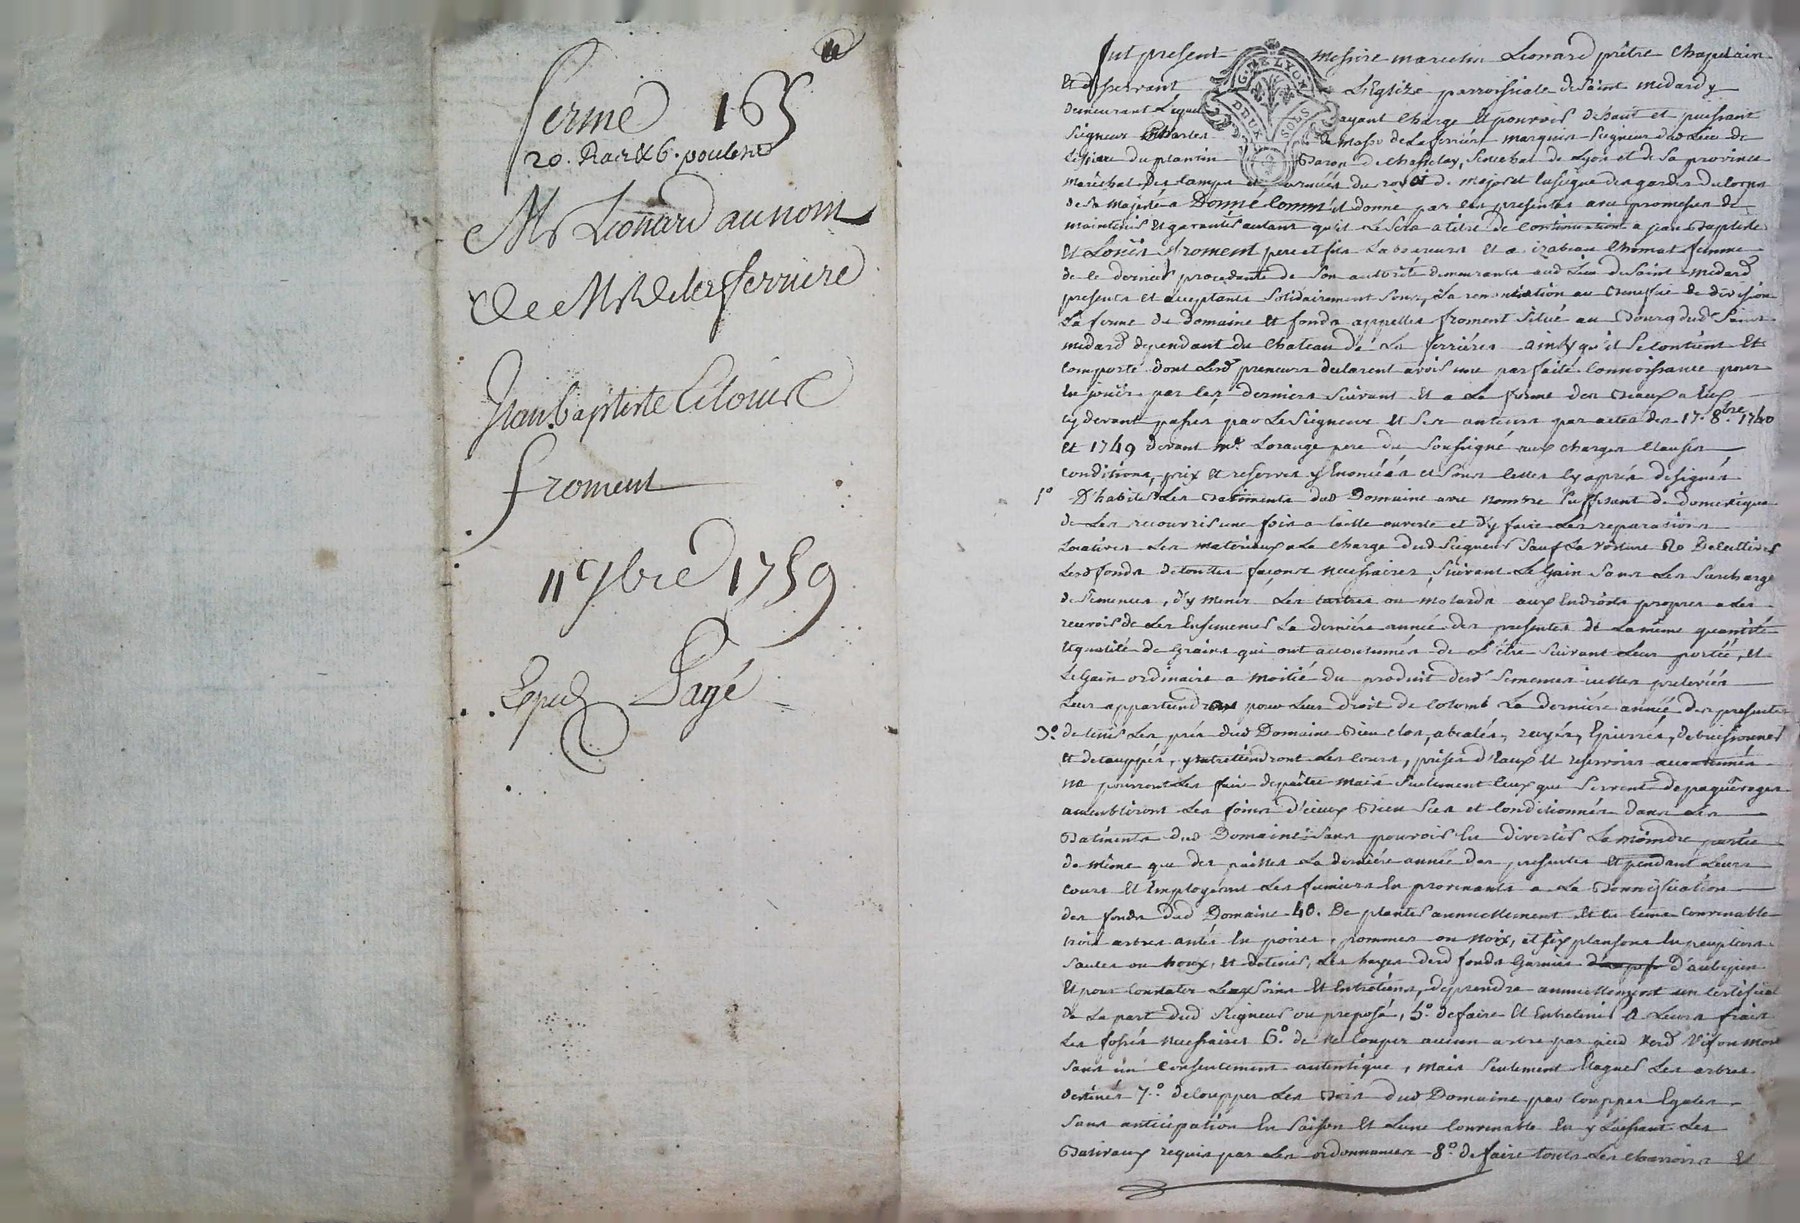 ferme 165
20. Ras & 6. poulets
Mr Leonard au nom
de Mr de la ferriere
Jean baptiste & louis
froment
11 9bre 1759
Exped Payé
G. DE LYON
DEUX SOLS
fut present messire Leonard prêtre Chapelain
Et desservant L'Eglize parroissiale de Saint medard y
demeurant Lequel ayant Charge Et pouvoir de haut et puissant
Seigneur Charles de Masso de La ferriere marquis Seigneur dud Lieu de
du plantin Baron de Chasselay, Senechal de Lyon et de Sa province
maréchal des Camps et armées du roy et major des gardes du Corps
de Sa majesté a Donné Comm'il donne par les presentes avec promesse de
maintenir Et garantir autant qu'il Le Sera a titre de Continuation a jean Baptiste
Et Louis froment pere et fils Laboureurs Et a izabeau Chomat femme
de Ce dernier procedante de Son autorité demeurants aud Lieu de Saint medard
presents Et acceptants Solidairement Sous La renonciation au Benefice de division
La ferme du domaine Et fonds appellés froment Situé au Bourg dud Saint
medard dependant du Chateau de La ferriére ainsy qu'il Se Contient Et
Comporte dont Lesd preneurs declarent avoir une parfaite Connoissance pour
En jouir par Ces derniers Suivant Et a La forme des Beaux a Eux
Cy devant passés par Le Seigneur Et Ses auteurs par actes des 17. 8bre 1740
Et 1749 devant me. Lorange pere du Soussigné aux Charges Clauses
Conditions, prix Et reserves y Enoncées et Sous Celles Cy aprés designés
1° D'habiter Les Batiments dud Domaine avec nombre Suffisant de domestiques
de Les recouvrir une fois a taille ouverte et d'y faire Les reparations
Locatives Les materiaux a La Charge dud Seigneur Sauf La voiture 2o De Cultiver
Lesd fonds de toutes façons necessaires, Suivant Le Gain Sans Les Surcharger
de Semences, d'y mener Les tertres ou molards aux Endroits propres a Les
recevoir de Les Ensemencer La derniére année des presentes de La même quantité
Et qualité de Grains qui ont accoutumés de L'être Suivant Leur portée, Et
Le Gain ordinaire a moitié du produit desd Semences icelles prelevées
Leur appartiendra pour Leur droit de Colomb La derniére année des presentes
3° de tenir Les prés dud Domaine Bien Clos, rayés, Epierrés, debuissonnés
et detauppés, y entretiendront Les Cours, prises d'Eaux Et reservoirs accoutumés
ne pourront Les faire depaitre mais Seulement Ceux qui Servent de paquerages
Les foins d'iceux Bien Secs et Conditionnés dans Les
Batiments dud Domaine Sans pouvoir En divertir La moindre partie
de même que des pailles La derniére année des presentes Et pendant Leurs
Cours Et Employeront Les fumiers En provenants a La Bonnification
des fonds dud Domaine 4o. De planter annuellement Et En tems Convenable
trois arbres antés En poires, pommes ou noix, et six plansons En peupliers
Saules ou houx, Et de tenir Les hayes desd fonds Garnies d'aubepin
Et pour Constater Les Soins Et Entretiens, de prendre annuellement un Certificat
de La part dud Seigneur ou preposé, 5.° de faire Et Entretenir a Leurs fraix
Les fossés necessaires 6.° de ne Couper aucun arbre par pied Verd Vif ou mort
Sans un Consentement autentique, mais Seulement Elaguer Les arbres
destinés 7.° de Coupper Les Bois dud Domaine par Couppes Egales
Sans anticipation En Saison Et Lune Convenable En y Laissant Les
Baliveaux requis par Les ordonnances 8.° de faire tous Les Charrois Et